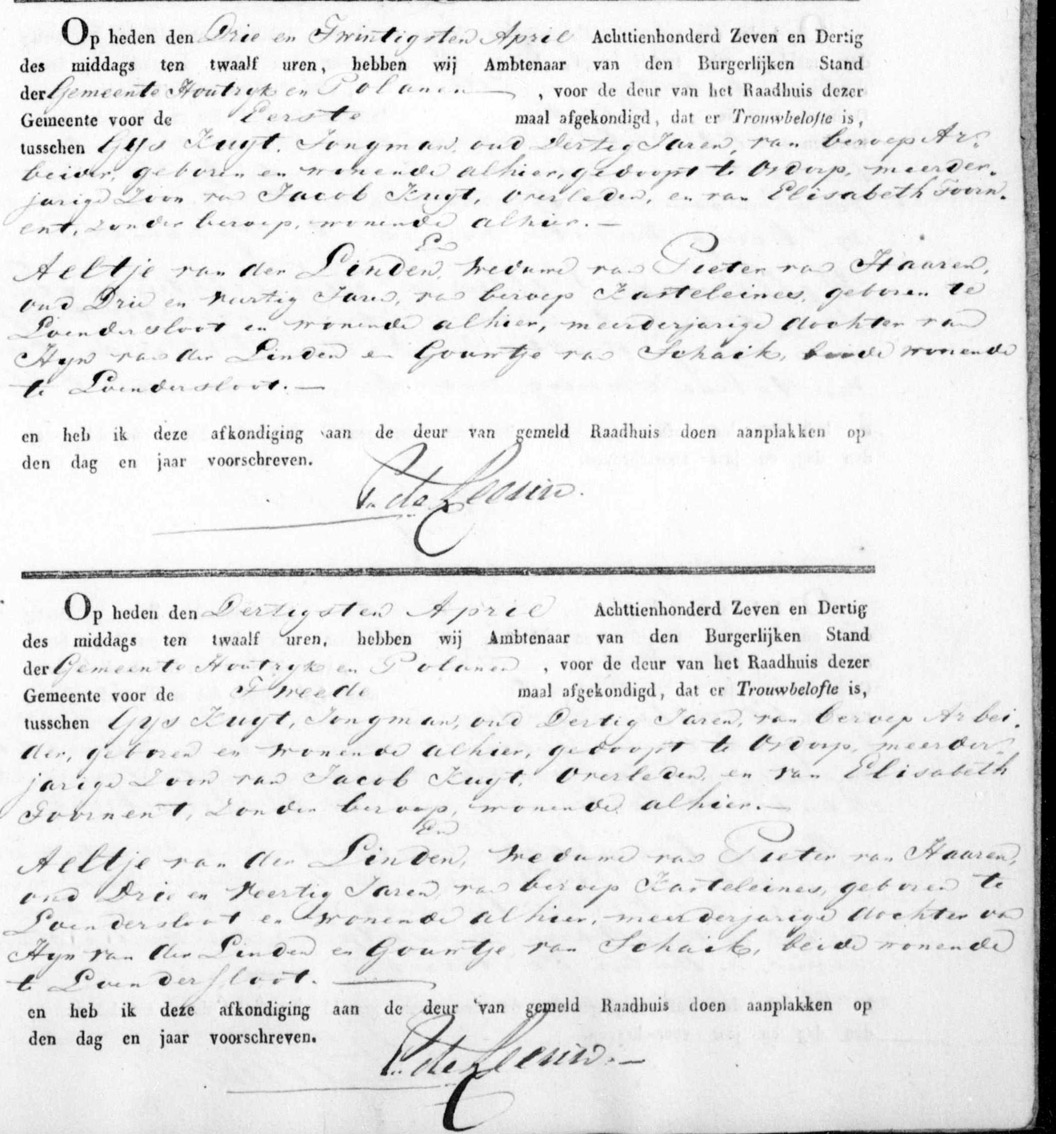 Op heden den Drie en Twintigsten April Achttienhonderd Zeven en Dertig
des middags ten twaalf uren, hebben wij Ambtenaar van den Burgerlijken Stand
der Gemeente Houtryk en Polanen , voor de deur van het Raadhuis dezer
Gemeente voor de Eerste maal afgekondigd, dat er Trouwbelofte is,
tusschen Gys Kugt, Jongman, oud Dertig Jaren, van beroep Ar-
beider, geboren en wonende alhier, gedoopt te Osdorp, meerder-
jarige Zoon van Jacob Kugt, overleden, en van Elisabeth Foorn-
ent, zonder beroep, wonende alhier. —
En
Aeltje van der Linden, Weduwe van Pieter van Haaren,
oud Drie en Veertig Jaren, van beroep Kasteleines, geboren te
Loendersloot en wonende alhier, meerderjarige dochter van
Hyn van der Linden en Gouwtje van Schaik, beide wonende
te Loendersloot. —
en heb ik deze afkondiging aan de deur van gemeld Raadhuis doen aanplakken op
den dag en jaar voorschreven.
de Leeuw.
Op heden den Dertigsten April Achttienhonderd Zeven en Dertig
des middags ten twaalf uren, hebben wij Ambtenaar van den Burgerlijken Stand
der Gemeente Houtryk en Polanen , voor de deur van het Raadhuis dezer
Gemeente voor de Tweede maal afgekondigd, dat er Trouwbelofte is,
tusschen Gys Kugt, Jongman, oud Dertig Jaren, van beroep Arbei-
der, geboren en wonende alhier, gedoopt te Osdorp, meerder-
jarige Zoon van Jacob Kugt, overleden, en van Elisabeth
Foornent, zonder beroep, wonende alhier. —
En
Aeltje van der Linden, Weduwe van Pieter van Haaren,
oud Drie en Veertig Jaren van beroep Kasteleines, geboren te
Loendersloot en wonende alhier, meerderjarige dochter van
Hyn van der Linden en Gouwtje van Schaik, beide wonende
te Loendersloot. —
en heb ik deze afkondiging aan de deur van gemeld Raadhuis doen aanplakken op
den dag en jaar voorschreven.
de Leeuw. —